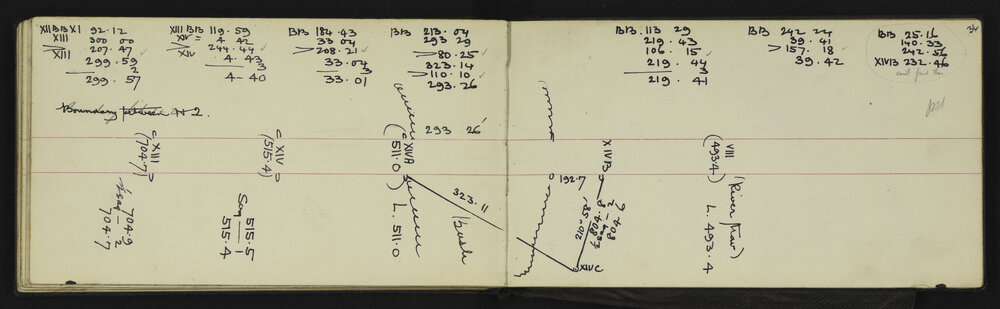 XII BB XI 92.12
XIII 300 00
XIII 207.47 ✓
299.59
2
299.57
XIII BB 119.59
XIV = 4 42
XIV 244.44 ✓
4.43
3
4-40
BB 184.43
33 04
208.21 ✓
33.04
3
33.01
BB 213.04
293 29
80.25 ✓
323.14
110.10 ✓
293.26
BB. 113 29
219.43
106.15 ✓
219.44
3
219.41
BB 242 24
39.41
157.18 ✓
39.42
BB 25.16
140.33
242.56
XIVB 232.46
Boundary between N 2.
293 26
= XIII =
(704.7)
704.9
Sag - 2
704.7
= XIV =
(515.4)
515.5
Sag - 1
515.4
= XIVA
(511.0)
L. 511.0
323.11
(Bush
192.7
XIVB
210°58'
804.8
Sag - 2
804.6
XIVC
VIII
(493.4)
(River
L. 493.4